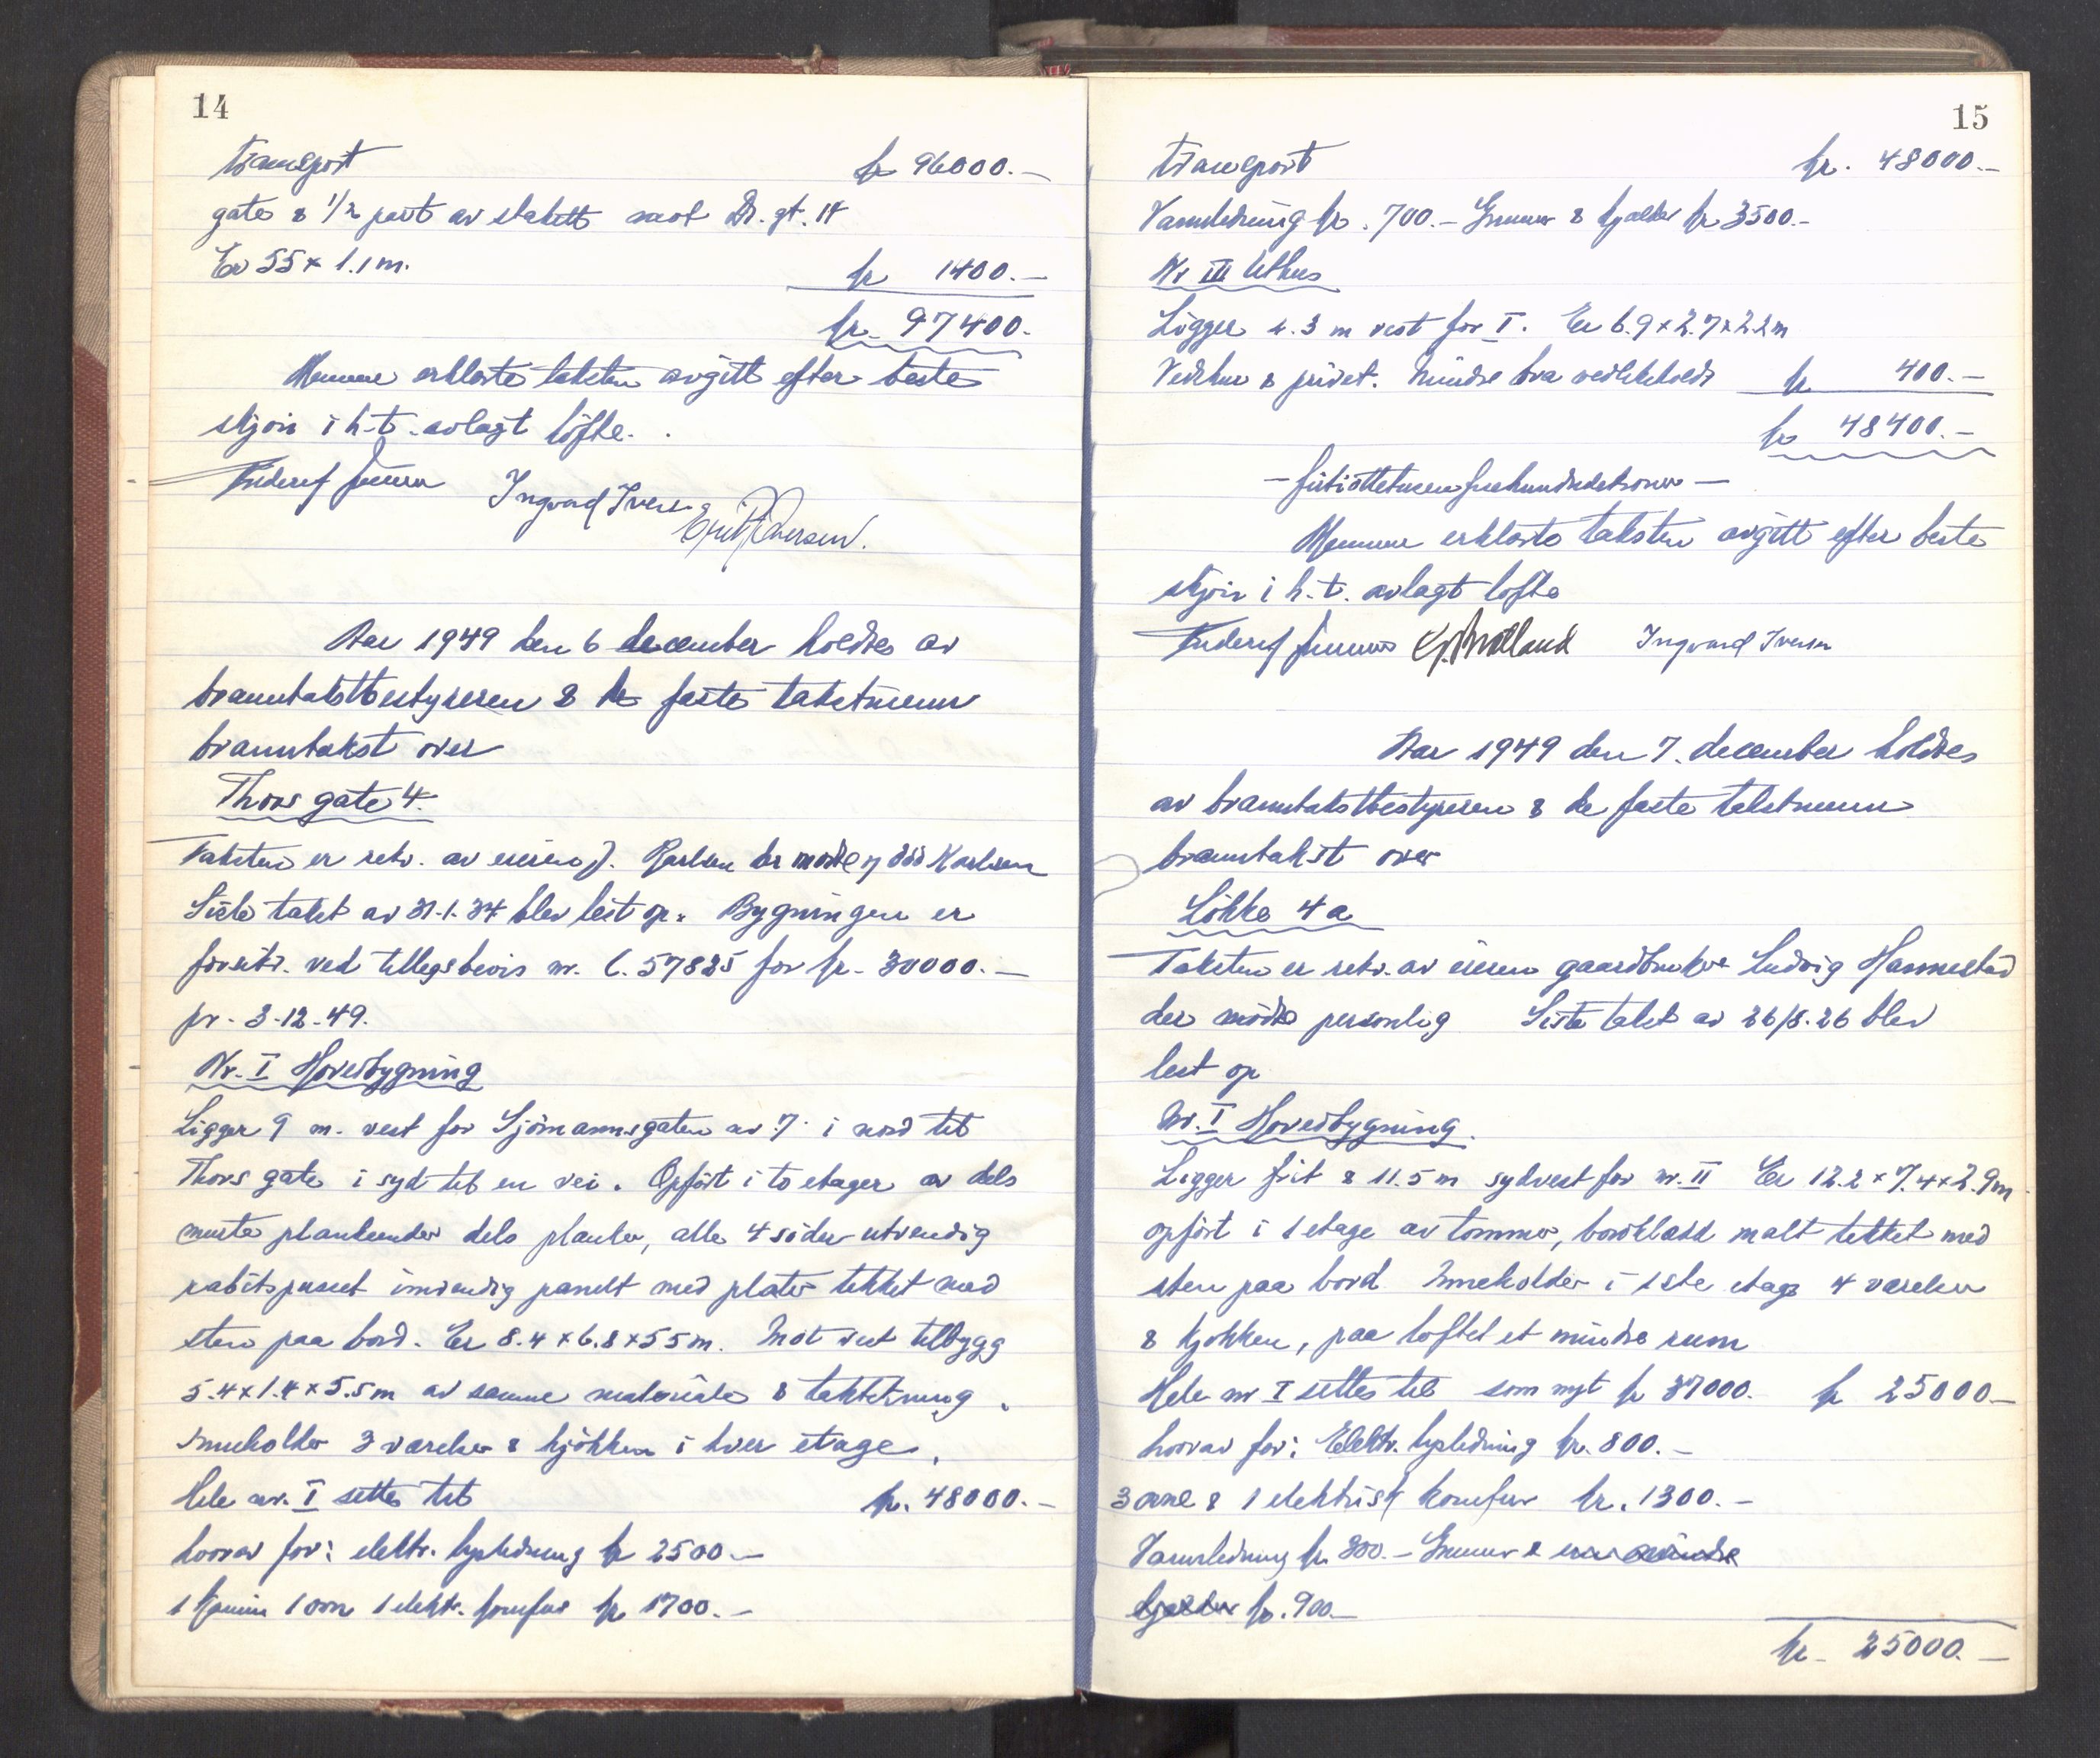 14
transport kr 96000.-
gate & 1/2 part av stakitt mot Dr. gt. 14
Er 55 x 1.1 m. kr 1400.-
kr. 97400.
Mennene erklærte taksten avgitt efter beste
skjøn i h.t. avlagt löfte.
Ingvard Iversen
Aar 1949 den 6 december holdtes av
branntakstbestyreren & de faste takstmenn
branntakst over
Thors gate 4.
Taksten er rekv. av eieren J. Karlsen der mødte ved Karlsen
Siste takst av 31.1.34 blev lest op. Bygningen er
forsikr. ved tilleggsbevis nr. C. 57835 for kr. 30000.-
pr. 3-12-49.
Nr. I Hovedbygning
Ligger 9 m. vest for Sjömannsgaten av 7. i nord til
Thors gate i syd til en vei. Opfört i to etager av dels
murte plankeender dels planker, alle 4 sider utvendig
rabitspusset innvendig panelt med plater tekket med
sten paa bord. Er 8.4 x 6.8 x 5.5 m. Mot vest tilbygg
5.4 x 1.4 x 5.5 m av samme materiale & taktekning.
Inneholder 3 værelser & kjökken i hver etage.
Hele nr. I settes til kr. 48000.-
hvorav for: elektr. lysledning kr 2500.-
1 kamin 1 ovn 1 elektr. komfur kr 1700.-
15
transport kr. 48000.-
Vannledning kr. 700.- Grunnmur & kjelder kr 3500.-
Nr III Uthus
Ligger 4.3 m vest for I. Er 6.9 x 2.7 x 2.2 m
Vedskur & privet. Mindre bra vedlikeholdt kr 400.-
kr 48400.-
- förtiåttetusenfirehundredekroner -
Mennene erklærte taksten avgitt efter beste
skjøn i h.t. avlagt löfte
Ingvard Iversen
Aar 1949 den 7. december holdtes
av branntakstbestyreren & de faste takstmenn
branntakst over
Lökke 4a
Taksten er rekv. av eieren gaardbruker Ludvig Hannestad
der mödte personlig Siste takst av 26/8.26 blev
lest op
Nr. I Hovedbygning.
Ligger frit & 11.5 m sydvest for nr. II Er 12.2 x 7.4 x 2.9 m
opfört i 1 etage av tömmer, bordklædd malt tekket med
sten paa bord. Inneholder i 1ste etage 4 værelser
& kjökken, paa loftet et mindre rum
Hele nr I settes til som nyt kr 37000. kr 25000.-
hvorav for: Elektr. lysledning kr. 800.-
3 ovne & 1 elektrisk komfur kr. 1300.-
Vannledning kr. 300.- Grunnmur & en mindre
kjelder kr. 900.-
kr. 25000.-